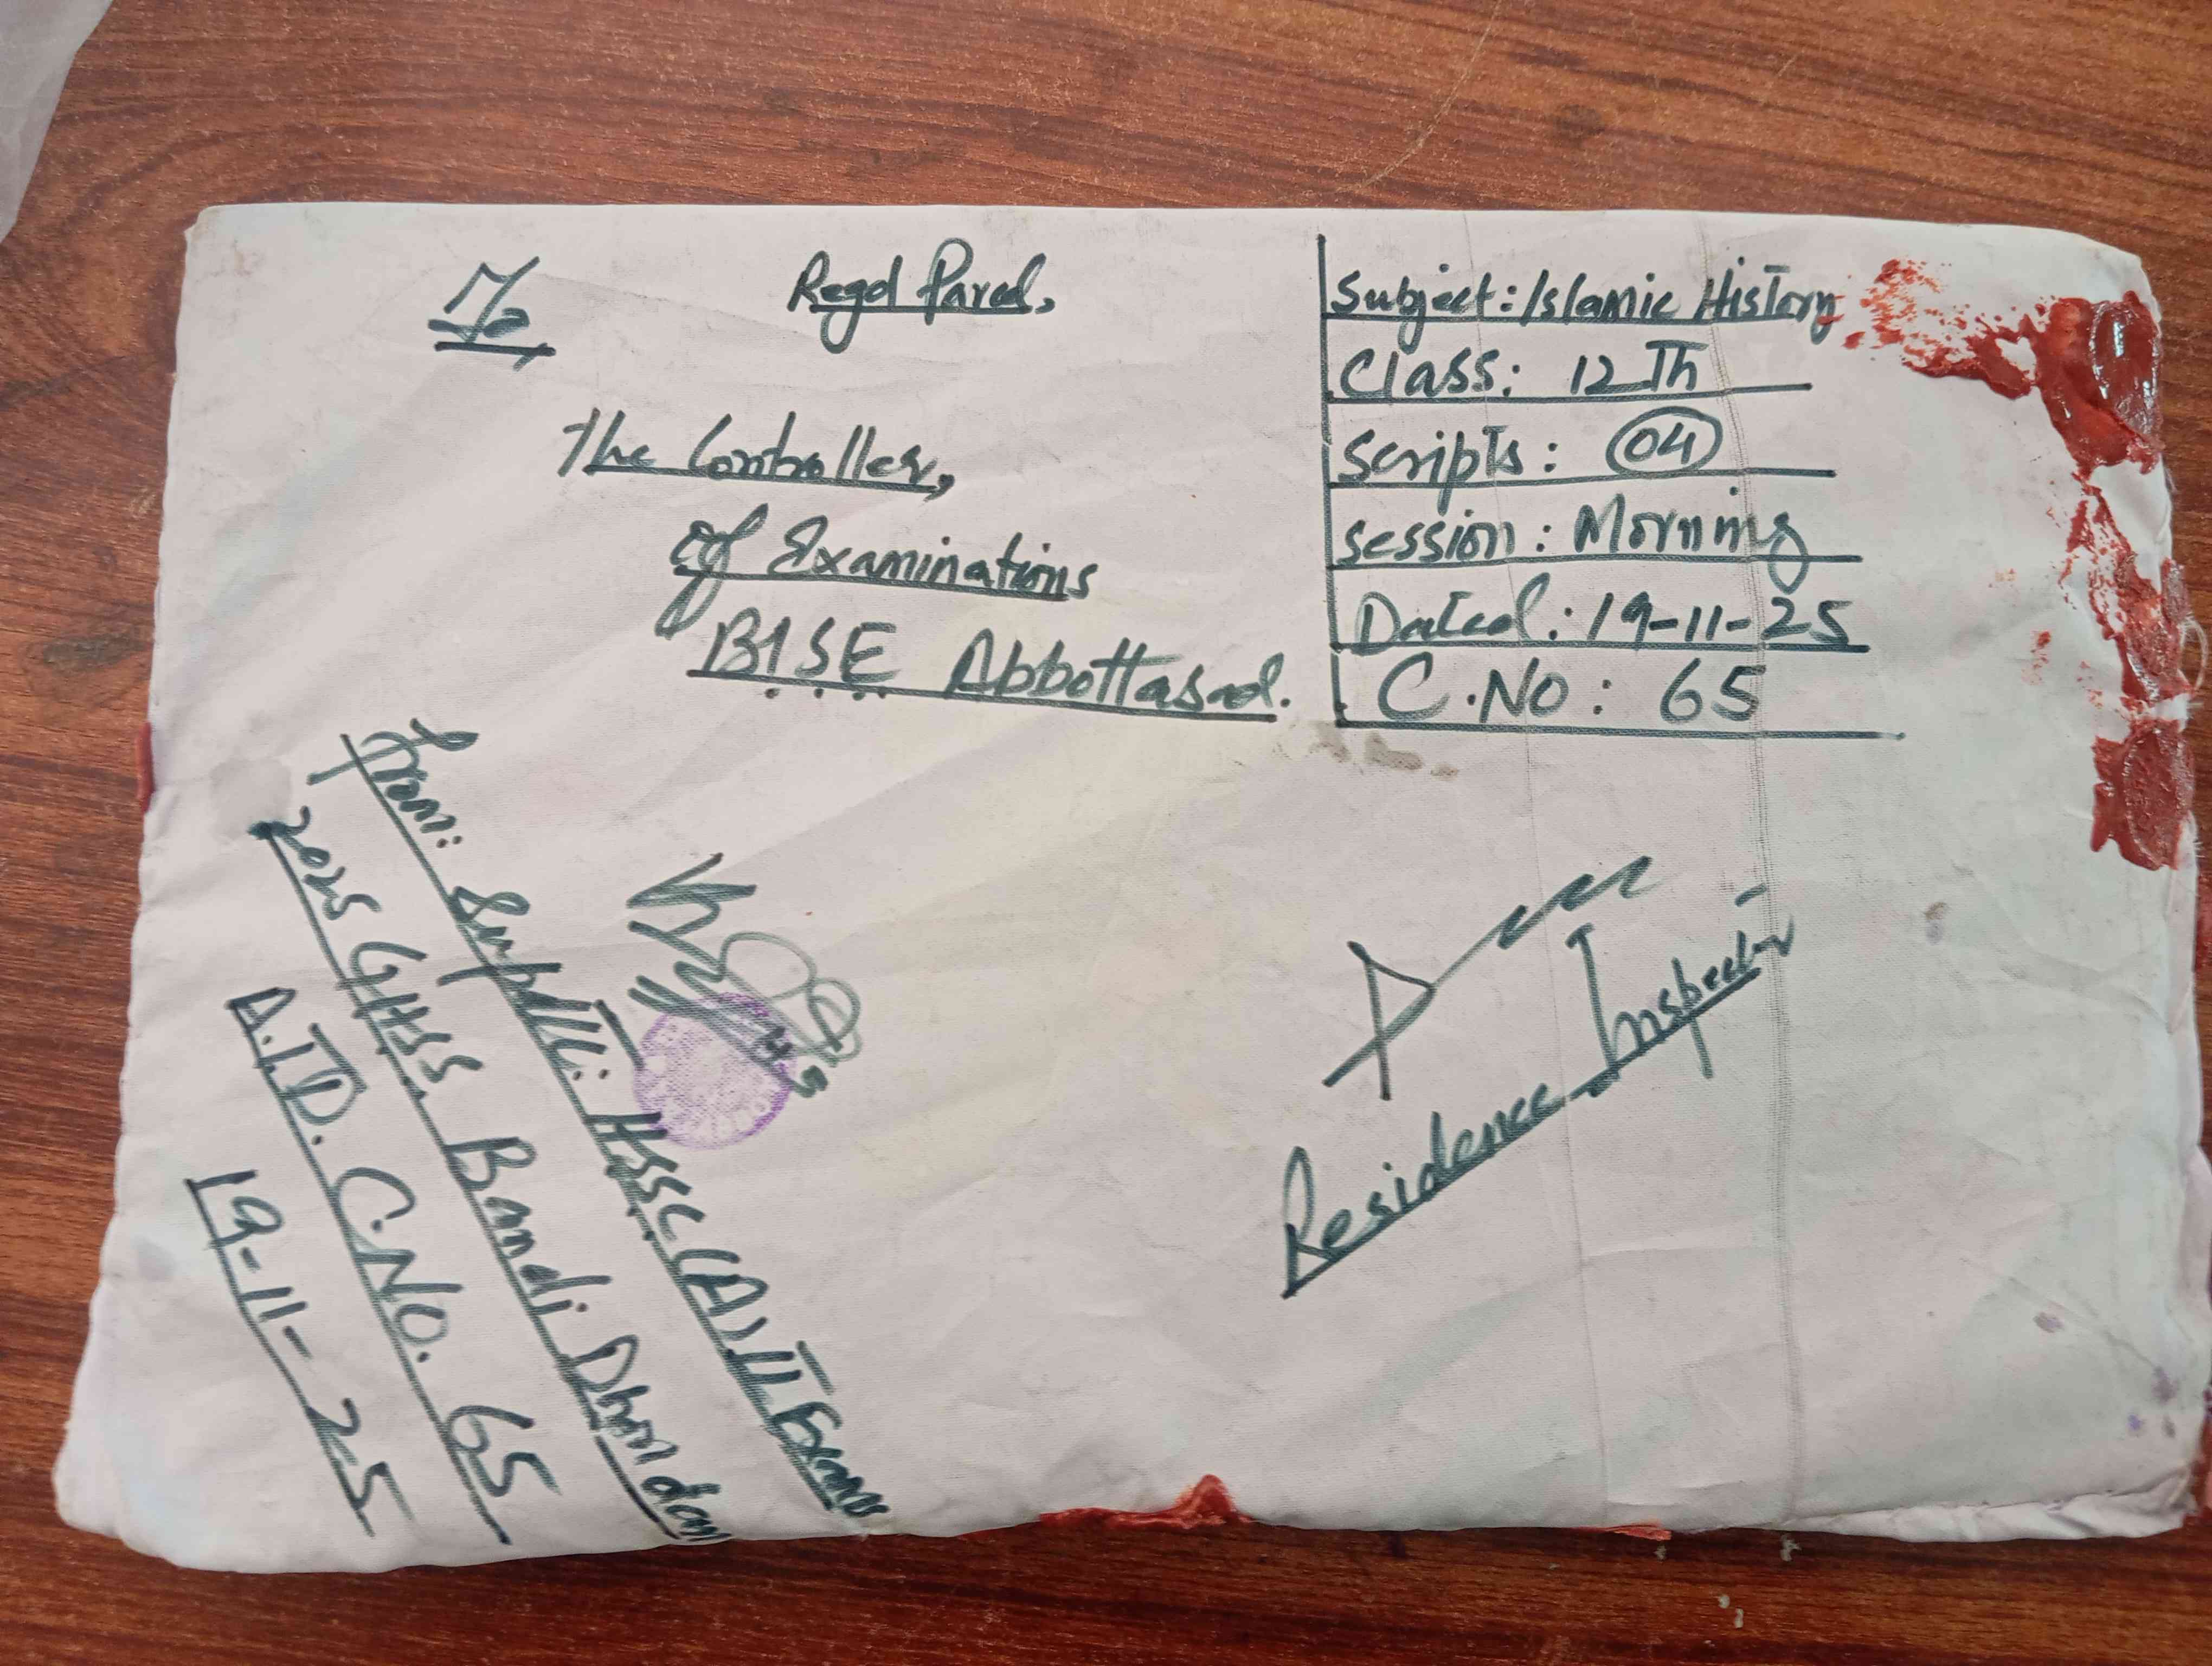 To
Regd Parcel,
The Controller,
of Examinations
BISE Abbottabad.
Subject: Islamic History
Class: 12Th
Scripts: 04
Session: Morning
Dated: 19-11-25
C.No: 65
From: Supdtt: HSSC(A) II Exams
2025 GHSS Bandi Dhundan
A.T.D. C.No. 65
19-11-25
Residence Inspector